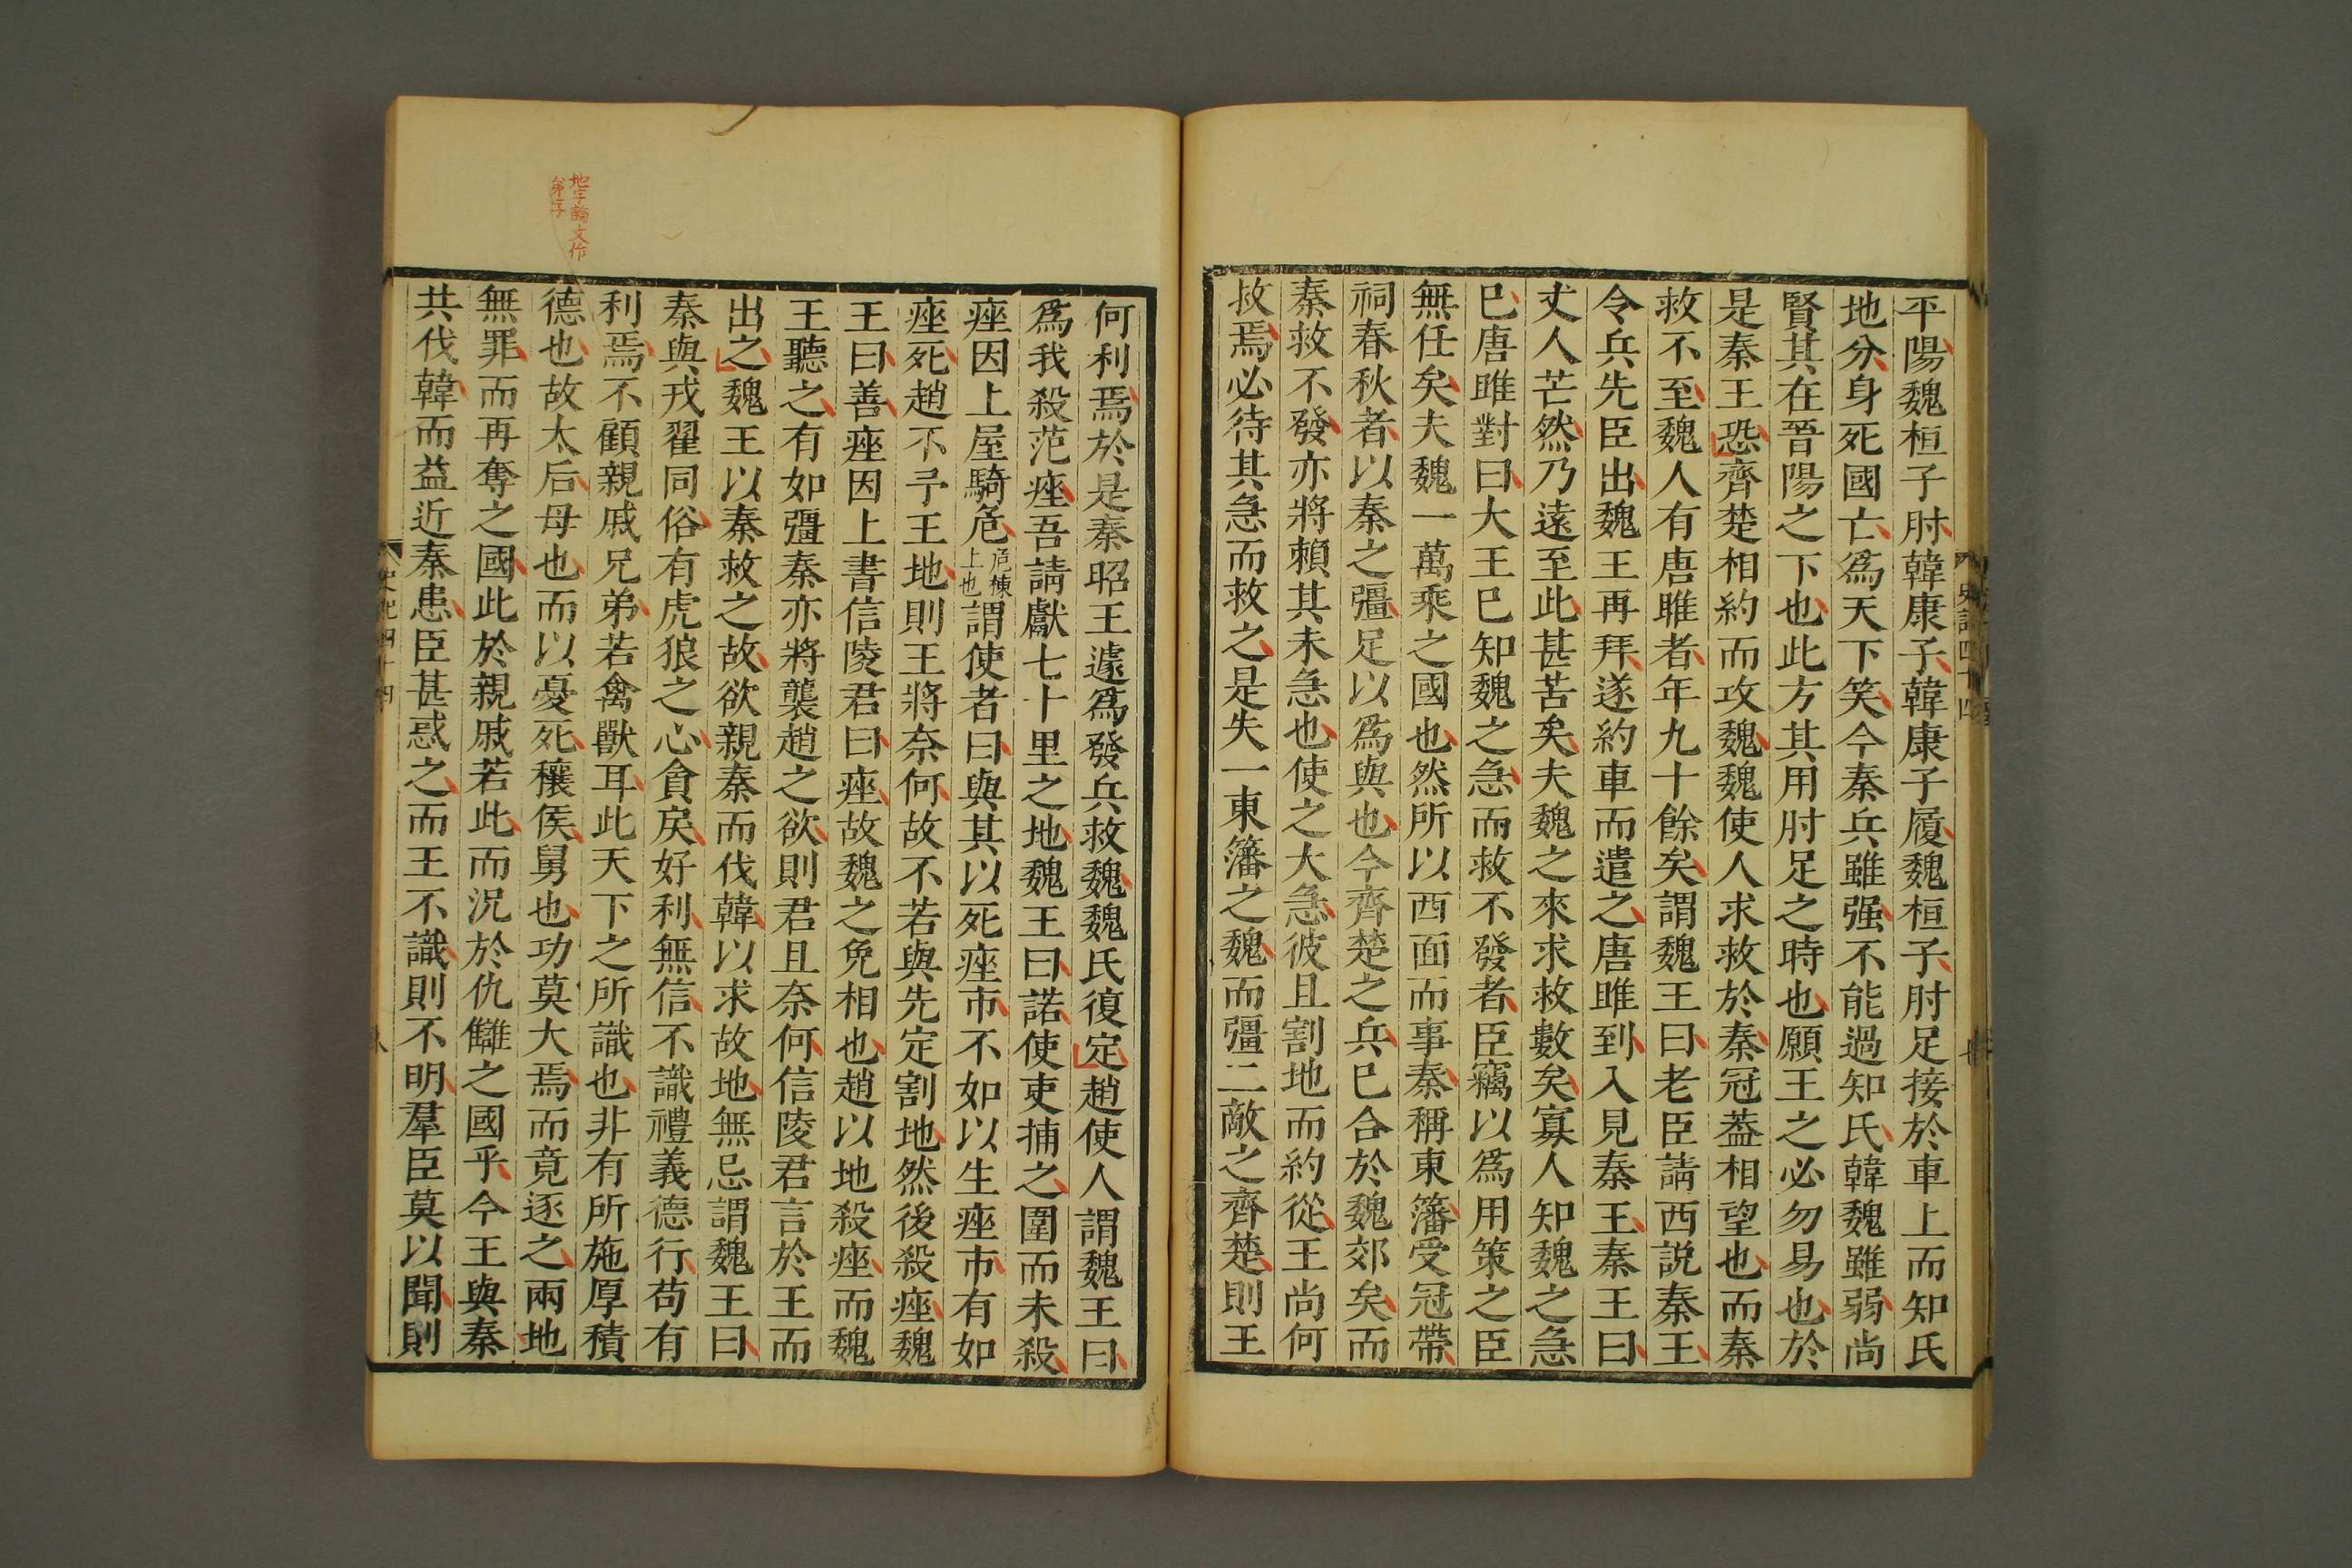 平陽魏桓子肘韓康子韓康子履魏桓子肘足接於車上而知氏
地分身死國亡爲天下笑今秦兵雖强不能過知氏韓魏雖弱尚
賢其在晉陽之下也此方其用肘足之時也願王之必勿易也於
是秦王恐齊楚相約而攻魏魏使人求救於秦冠蓋相望也而秦
救不至魏人有唐雎者年九十餘矣謂魏王曰老臣請西說秦王
令兵先臣出魏王再拜遂約車而遣之唐雎到入見秦王秦王曰
丈人芒然乃遠至此甚苦矣夫魏之來求救數矣寡人知魏之急
已唐雎對曰大王已知魏之急而救不發者臣竊以爲用策之臣
無任矣夫魏一萬乘之國也然所以西面而事秦稱東籓受冠帶
祠春秋者以秦之彊足以爲與也今齊楚之兵已合於魏郊矣而
秦救不發亦將賴其未急也使之大急彼且割地而約從王尚何
救焉必待其急而救之是失一東籓之魏而彊二敵之齊楚則王
史記四十四
何利焉於是秦昭王遽爲發兵救魏魏氏復定趙使人謂魏王曰
爲我殺范痤吾請獻七十里之地魏王曰諾使吏捕之圍而未殺
痤因上屋騎危危棟上也謂使者曰與其以死痤市不如以生痤市有如
痤死趙不予王地則王將奈何故不若與先定割地然後殺痤魏
王曰善痤因上書信陵君曰痤故魏之免相也趙以地殺痤而魏
王聽之有如彊秦亦將襲趙之欲則君且奈何信陵君言於王而
出之魏王以秦救之故欲親秦而伐韓以求故地無忌謂魏王曰
秦與戎翟同俗有虎狼之心貪戾好利無信不識禮義德行苟有
利焉不顧親戚兄弟若禽獸耳此天下之所識也非有所施厚積
德也故太后母也而以憂死穰侯舅也功莫大焉而竟逐之兩地
無罪而再奪之國此於親戚若此而況於仇讎之國乎今王與秦
共伐韓而益近秦患臣甚惑之而王不識則不明羣臣莫以聞則
史記四十四
地字論文作
弟字